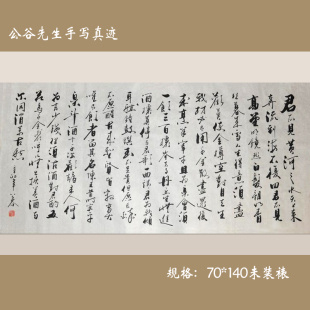 公谷先生手写真迹
君不見黄河之水天上来
奔流到海不復回君不見
高堂明鏡悲白髮朝如青
絲暮成雪人生得意須盡
歡莫使金樽空對月天生
我材必有用千金散盡還復
来烹羊宰牛且為樂會須
一飲三百杯岑夫子丹丘生將進
酒
耳聽
不願醒古来聖賢皆寂寞
惟有飲者留其名陳王昔時宴平
樂斗酒十千恣歡謔主人何
為言少錢徑須沽酒對君酌五
花馬千金裘呼兒將出換美酒與
尔同消萬古愁
规格：70*140未装裱